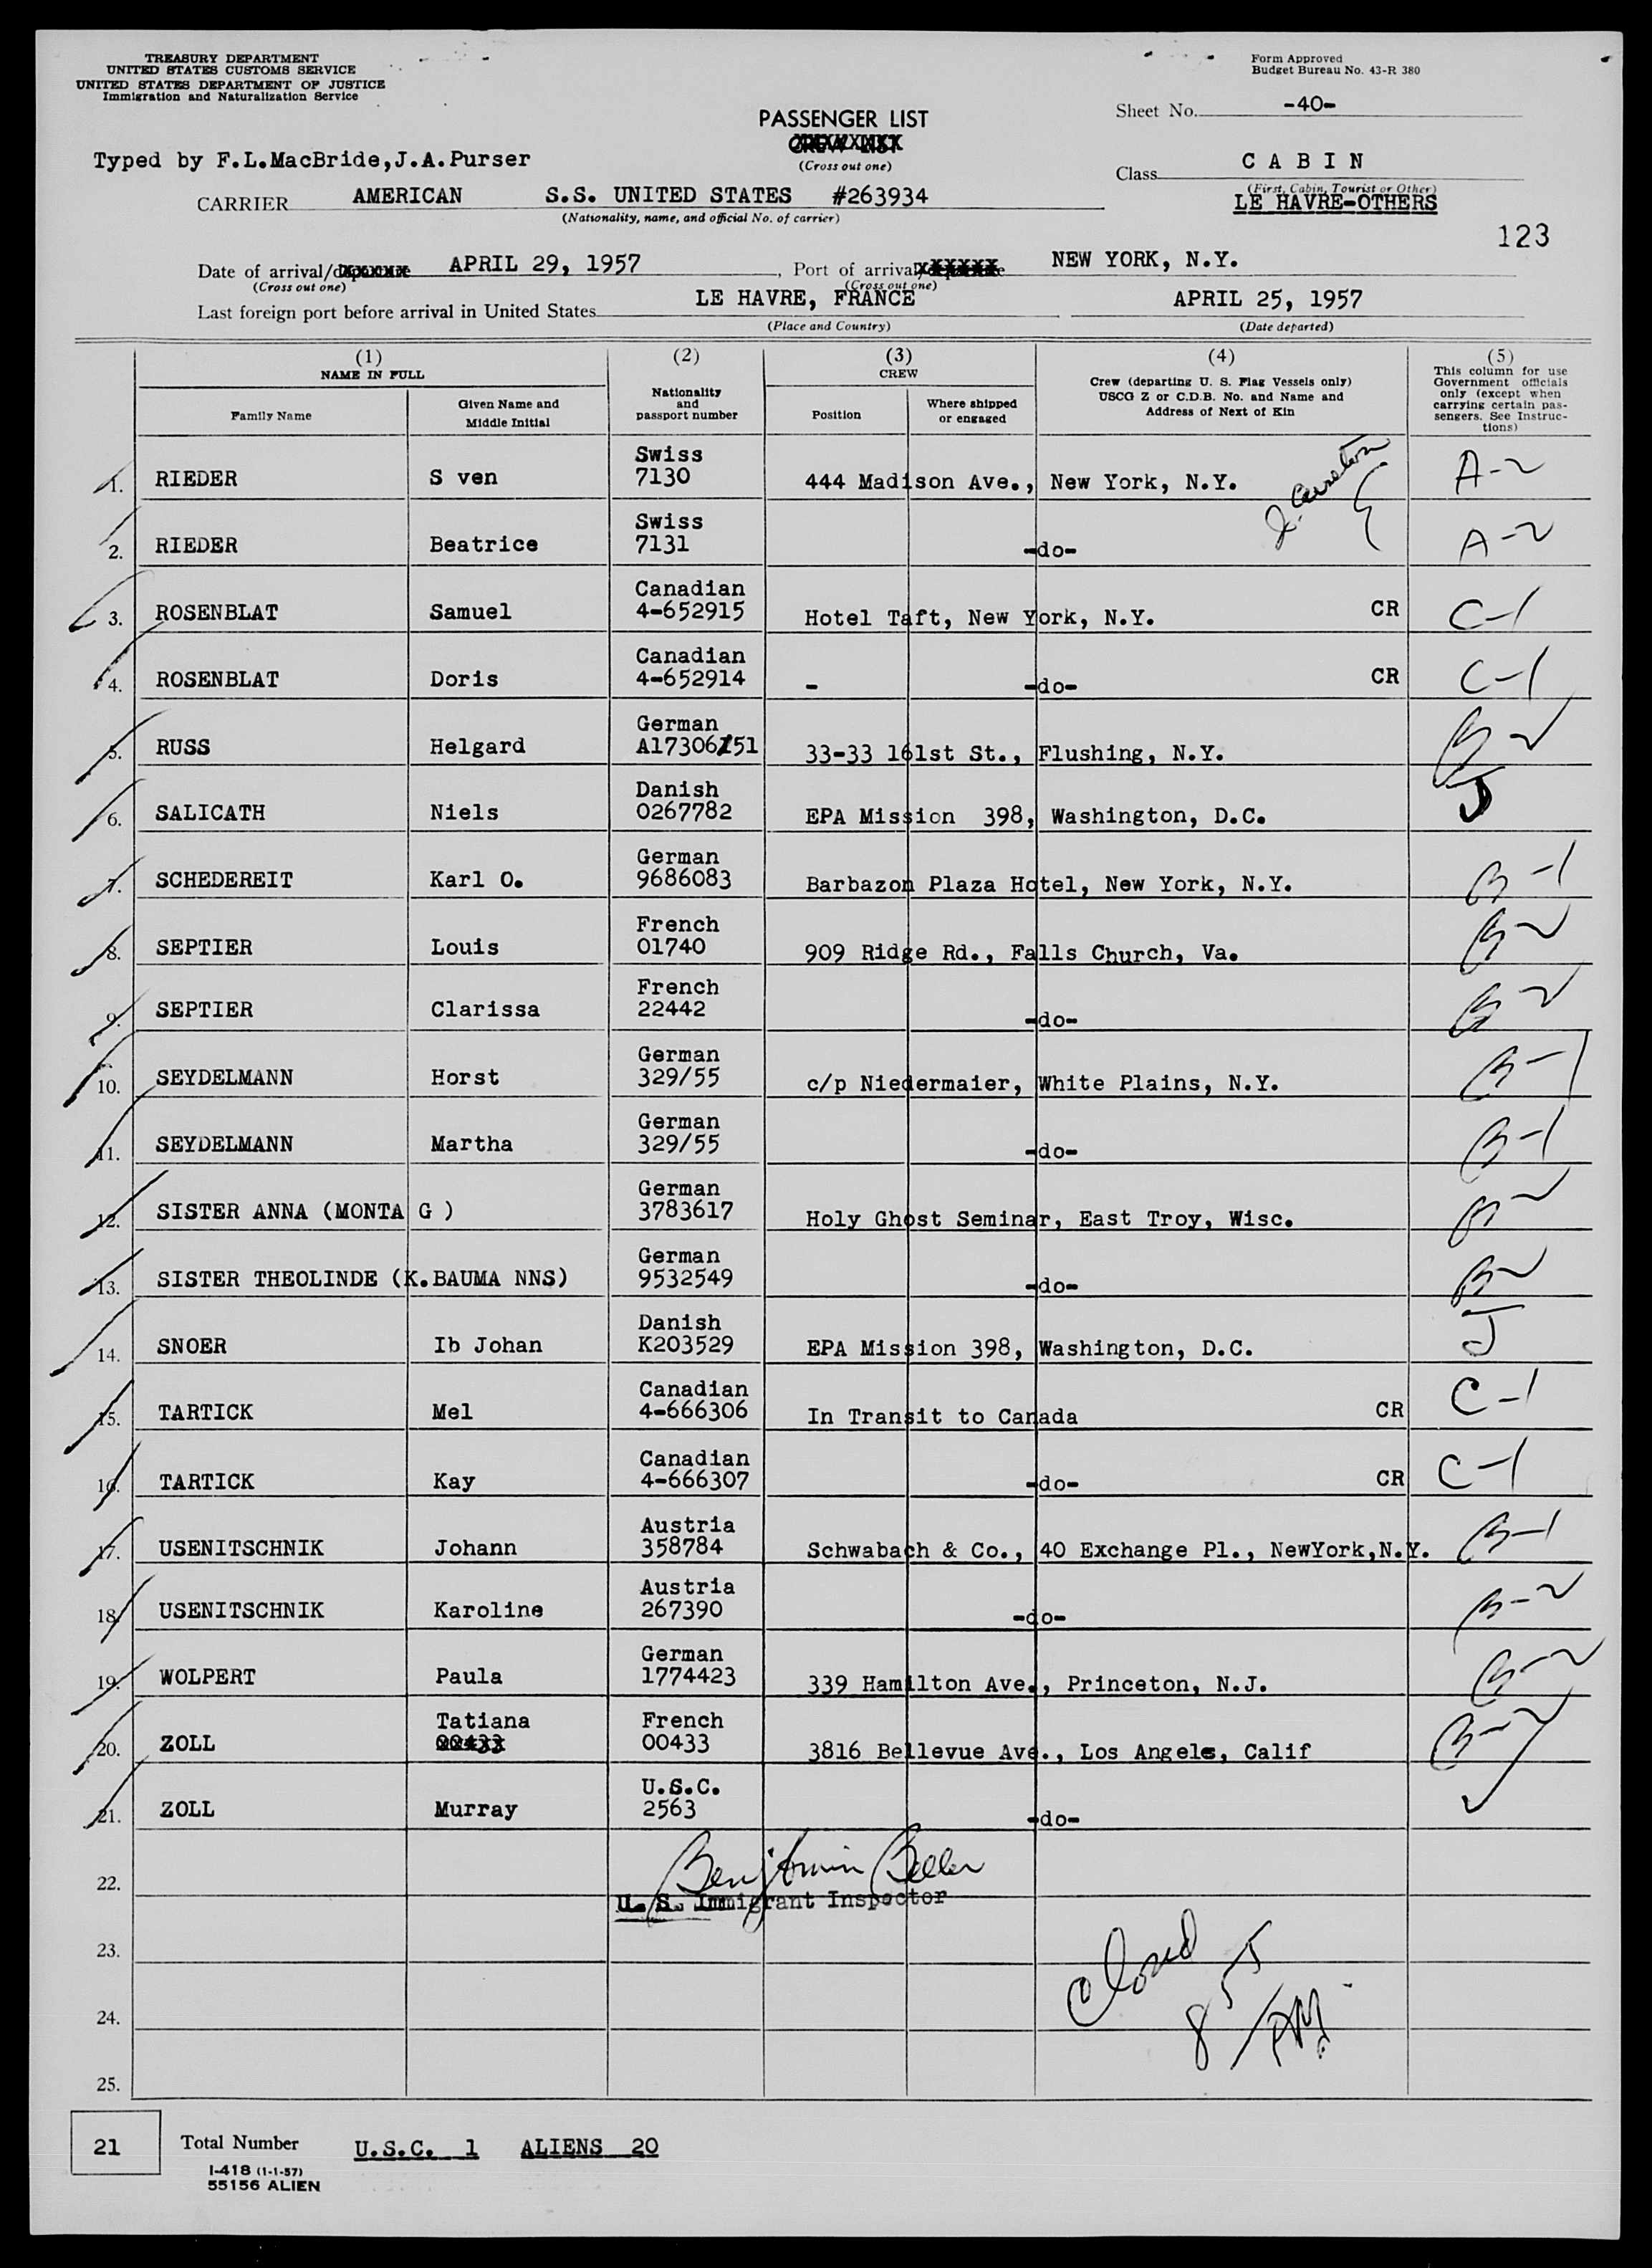 TREASURY DEPARTMENT
UNITED STATES CUSTOMS SERVICE
UNITED STATES DEPARTMENT OF JUSTICE
Immigration and Naturalization Service
Form Approved
Budget Bureau No. 43-R 380
Sheet No. -40-
PASSENGER LIST
CREW LIST
(Cross out one)
Typed by F.L.MacBride,J.A.Purser
Class C A B I N
(First, Cabin, Tourist or Other)
LE HAVRE-OTHERS
CARRIER AMERICAN S.S. UNITED STATES #263934
(Nationality, name, and official No. of carrier)
123
Date of arrival/departure APRIL 29, 1957, Port of arrival/departure NEW YORK, N.Y.
(Cross out one) (Cross out one)
Last foreign port before arrival in United States LE HAVRE, FRANCE APRIL 25, 1957
(Place and Country) (Date departed)
(1) NAME IN FULL
Family Name
Given Name and Middle Initial
(2)
Nationality and passport number
(3) CREW
Position
Where shipped or engaged
(4)
Crew (departing U. S. Flag Vessels only)
USCG Z or C.D.B. No. and Name and
Address of Next of Kin
(5)
This column for use
Government officials
only (except when
carrying certain pas-
sengers. See Instruc-
tions)
1. RIEDER S ven Swiss 7130 444 Madison Ave., New York, N.Y. A-2
2. RIEDER Beatrice Swiss 7131 -do- A-2
3. ROSENBLAT Samuel Canadian 4-652915 Hotel Taft, New York, N.Y. CR C-1
4. ROSENBLAT Doris Canadian 4-652914 - -do- CR C-1
5. RUSS Helgard German A17306151 33-33 161st St., Flushing, N.Y. B-2
6. SALICATH Niels Danish 0267782 EPA Mission 398, Washington, D.C. J
7. SCHEDEREIT Karl O. German 9686083 Barbazon Plaza Hotel, New York, N.Y. B-1
8. SEPTIER Louis French 01740 909 Ridge Rd., Falls Church, Va. B-2
9. SEPTIER Clarissa French 22442 -do- B-2
10. SEYDELMANN Horst German 329/55 c/p Niedermaier, White Plains, N.Y. B-1
11. SEYDELMANN Martha German 329/55 -do- B-1
12. SISTER ANNA (MONTA G ) German 3783617 Holy Ghost Seminar, East Troy, Wisc. B-2
13. SISTER THEOLINDE (K.BAUMA NNS) German 9532549 -do- B-2
14. SNOER Ib Johan Danish K203529 EPA Mission 398, Washington, D.C. J
15. TARTICK Mel Canadian 4-666306 In Transit to Canada CR C-1
16. TARTICK Kay Canadian 4-666307 -do- CR C-1
17. USENITSCHNIK Johann Austria 358784 Schwabach & Co., 40 Exchange Pl., NewYork,N.Y. B-1
18. USENITSCHNIK Karoline Austria 267390 -do- B-2
19. WOLPERT Paula German 1774423 339 Hamilton Ave., Princeton, N.J. B-2
20. ZOLL Tatiana 00433 French 00433 3816 Bellevue Ave., Los Angeles, Calif B-2
21. ZOLL Murray U.S.C. 2563 -do-
Benjamin Beller
22.
U. S. Immigrant Inspector
23.
closed
24.
8 55/PM.
25.
21 Total Number U.S.C. 1 ALIENS 20
I-418 (1-1-57)
55156 ALIEN